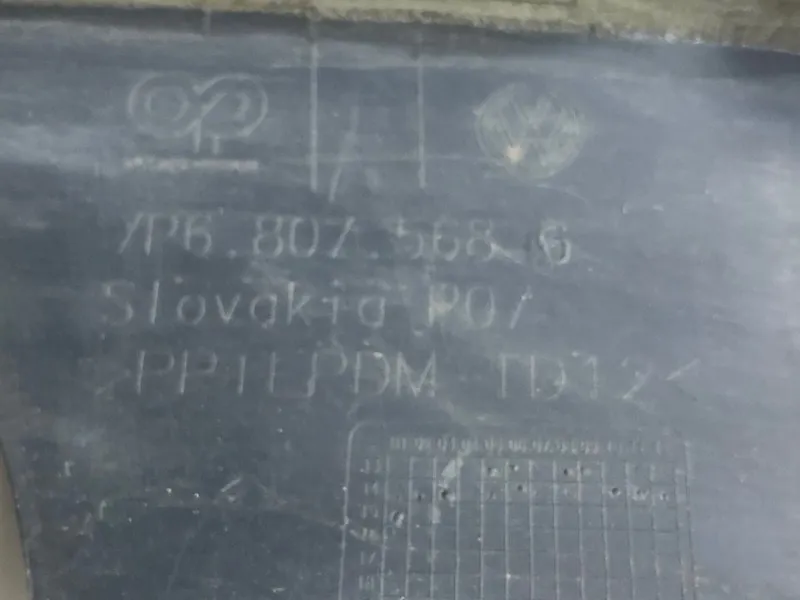 VW
7P6.807.568 G
Slovakia P07
>PP+EPDM-TD12<